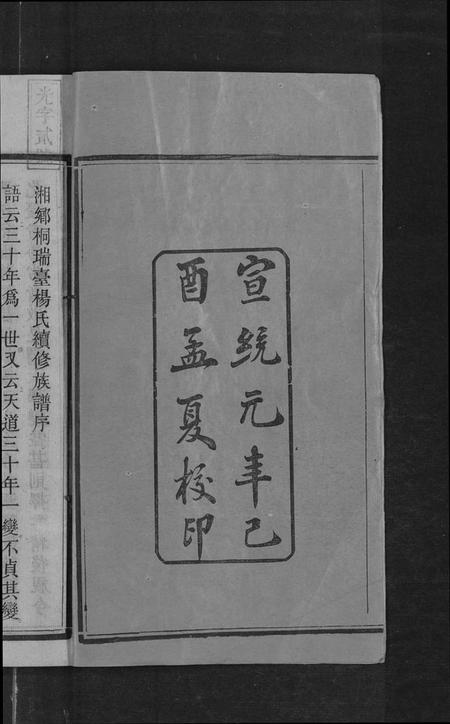 宣統元年己
酉孟夏校印
湘鄉桐瑞臺楊氏續修族譜序
語云三十年爲一世又云天道三十年一變不貞其變
光字貳